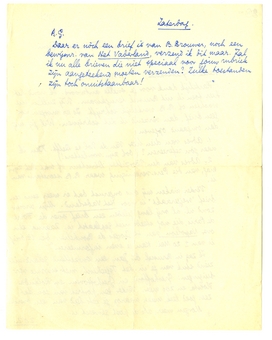 Zaterdag.
A.G.
Daar er nóch een brief is van B. Brouwer, noch een
bewijsnr. van Het Vaderland, verzend ik dit maar. Zal
ik nu alle brieven die niet speciaal voor jouw rubriek
zijn aangetekend moeten verzenden? Zulke toestanden
zijn toch onuitstaanbaar!